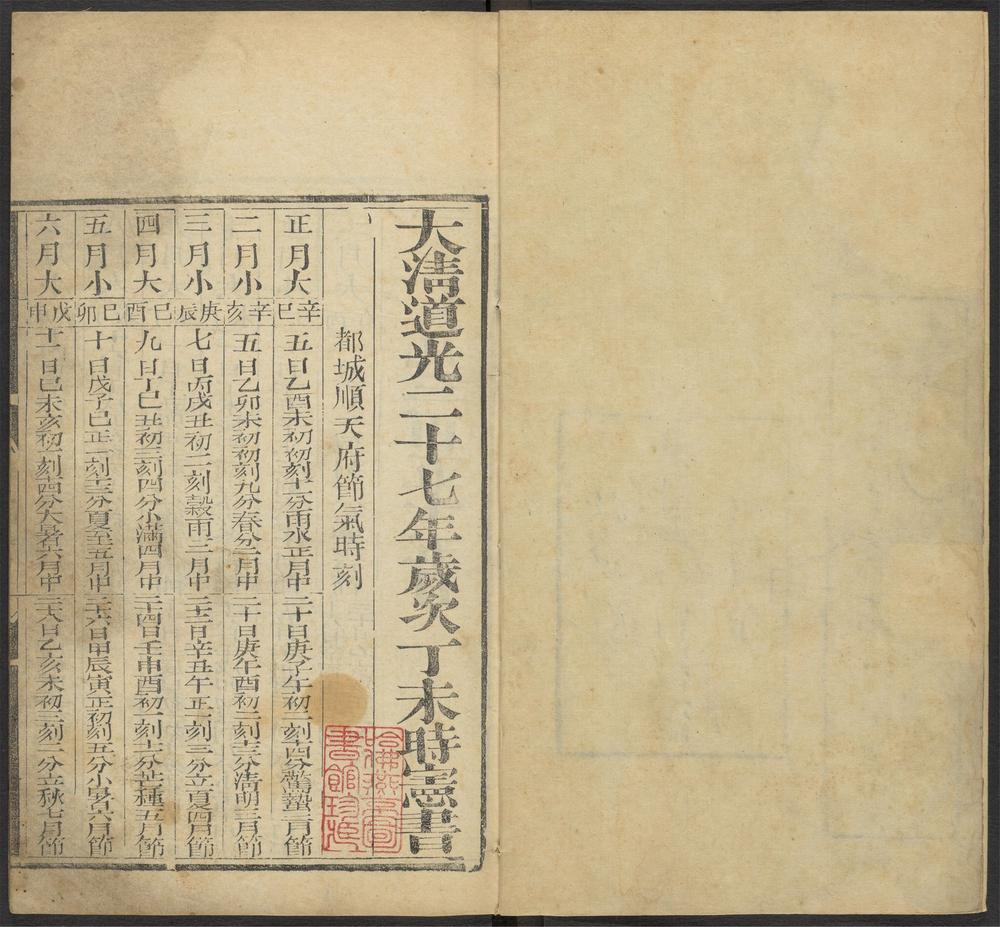 大清道光二十七年歲次丁未時憲書
都城順天府節氣時刻
正月大
辛巳
五日乙酉未初初刻十一分雨水正月中
二十日庚子午初一刻十四分驚蟄二月節
二月小
辛亥
五日乙卯未初初刻九分春分二月中
二十日庚午酉初一刻十三分清明三月節
三月小
庚辰
七日丙戌丑初二刻穀雨三月中
二十二日辛丑午正一刻三分立夏四月節
四月大
己酉
九日丁巳丑初三刻四分小滿四月中
二十四日壬申酉初一刻十一分芒種五月節
五月小
己卯
十日戊子巳正一刻十三分夏至五月中
二十六日甲辰寅正初刻五分小暑六月節
六月大
戊申
十二日己未亥初一刻十四分大暑六月中
二十八日乙亥未初三刻二分立秋七月節
哈佛燕京圖書館珍藏